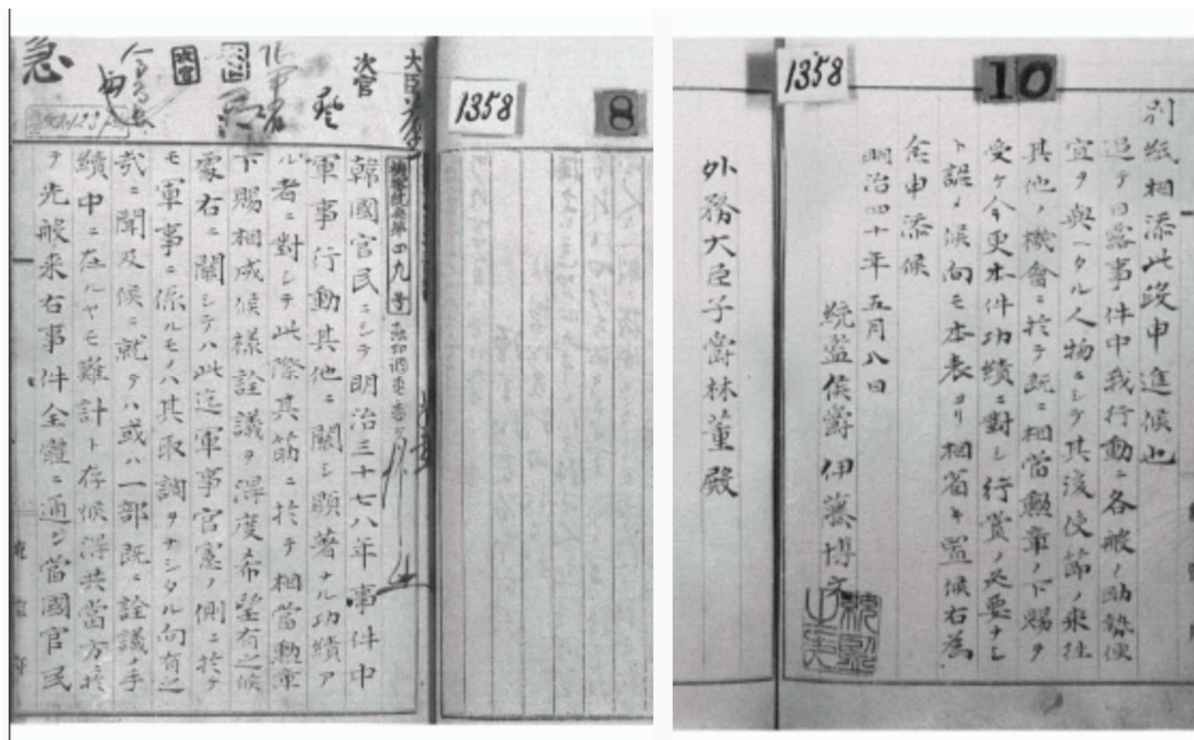 急
大臣
次官
1358
8
韓國官民ニシテ明治三十七八年事件中
軍事行動其他ニ關シ顯著ナル功績ア
ル者ニ對シテ此際其筋ニ於テ相當勲章
下賜相成候様詮議ヲ得度希望有之候
處右ニ關シテハ此迄軍事官憲ノ側ニ於テ
モ軍事ニ係ルモノハ其取調ヲナシタル向有之
哉ニ聞及候ニ就テハ或ハ一部既ニ詮議ノ手
續中ニ在ルヤモ難計ト存候得共當方ニ於
テ先般来右事件全體ニ通シ當國官民
1358
10
別紙相添此段申進候也
追テ日露事件中我行動ニ各般ノ助勢便
宜ヲ與ヘタル人物ニシテ其後使節ノ来往
其他ノ機會ニ於テ既ニ相當勲章ノ下賜ヲ
受ケ今更本件功績ニ對シ行賞ノ必要ナシ
ト認ノ候向モ本表ヨリ相省キ置候右為
念申添候
明治四十年五月八日
統監侯爵伊藤博文
外務大臣子爵林董殿